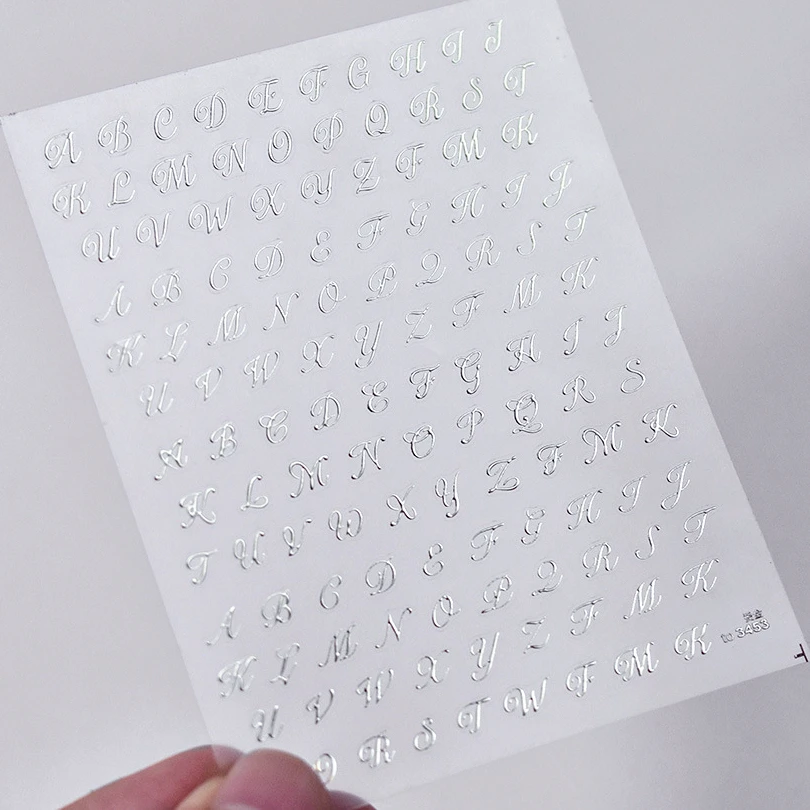 A B C D E F G H I J
K L M N O P Q R S T
U V W X Y Z F M K
A B C D E F G H I J
K L M N O P Q R S T
U V W X Y Z F M K
A B C D E F G H I J
K L M N O P Q R S
T U V W X Y Z F M K
A B C D E F G H I J
K L M N O P Q R S T
U V W X Y Z F M K
Q R S T W F M K
3453
T